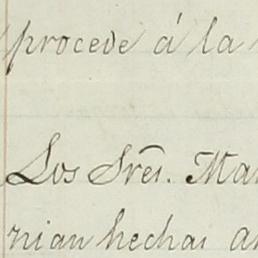 procede á la
Los Sres. Ma
nian hechas a